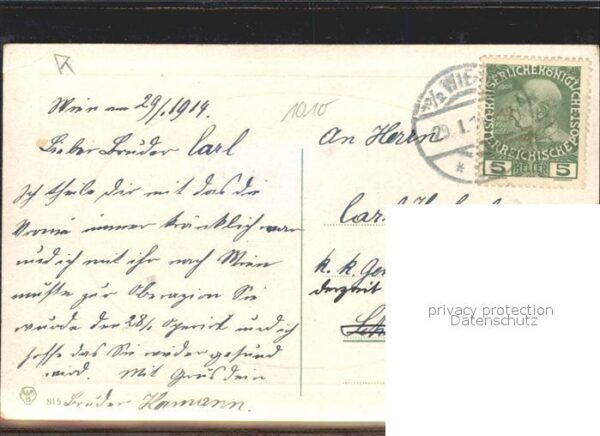 Wien am 29/1. 1914.
1010
Lieber Bruder Carl
Ich theile Dir mit das die
immer kränklich war
und ich mit ihr nach Wien
mußte zur Oberazion Sie
wurde den 28/1 Operirt und ich
hoffe das Sie wieder gesund
wird. Mit Grus Dein
Bruder Hamann.
815
An Herrn
Carl
k. k.
derzeit
WIE
29. I. 1
KAISERLICHE KÖNIGLICHE
ÖSTERREICHISCHE
5 HELLER 5
privacy protection
Datenschutz